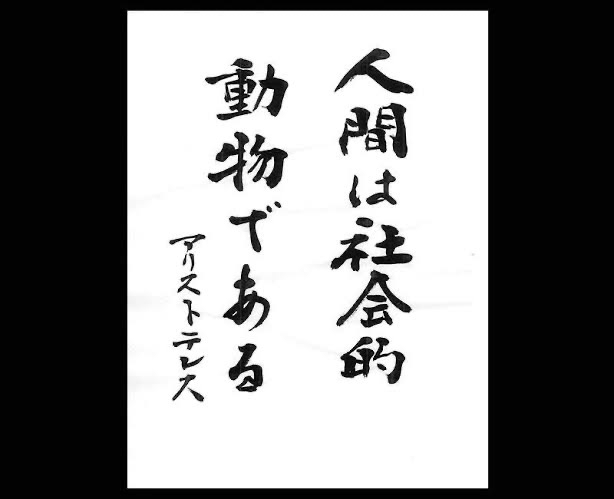 人間は社会的
動物である
アリストテレス